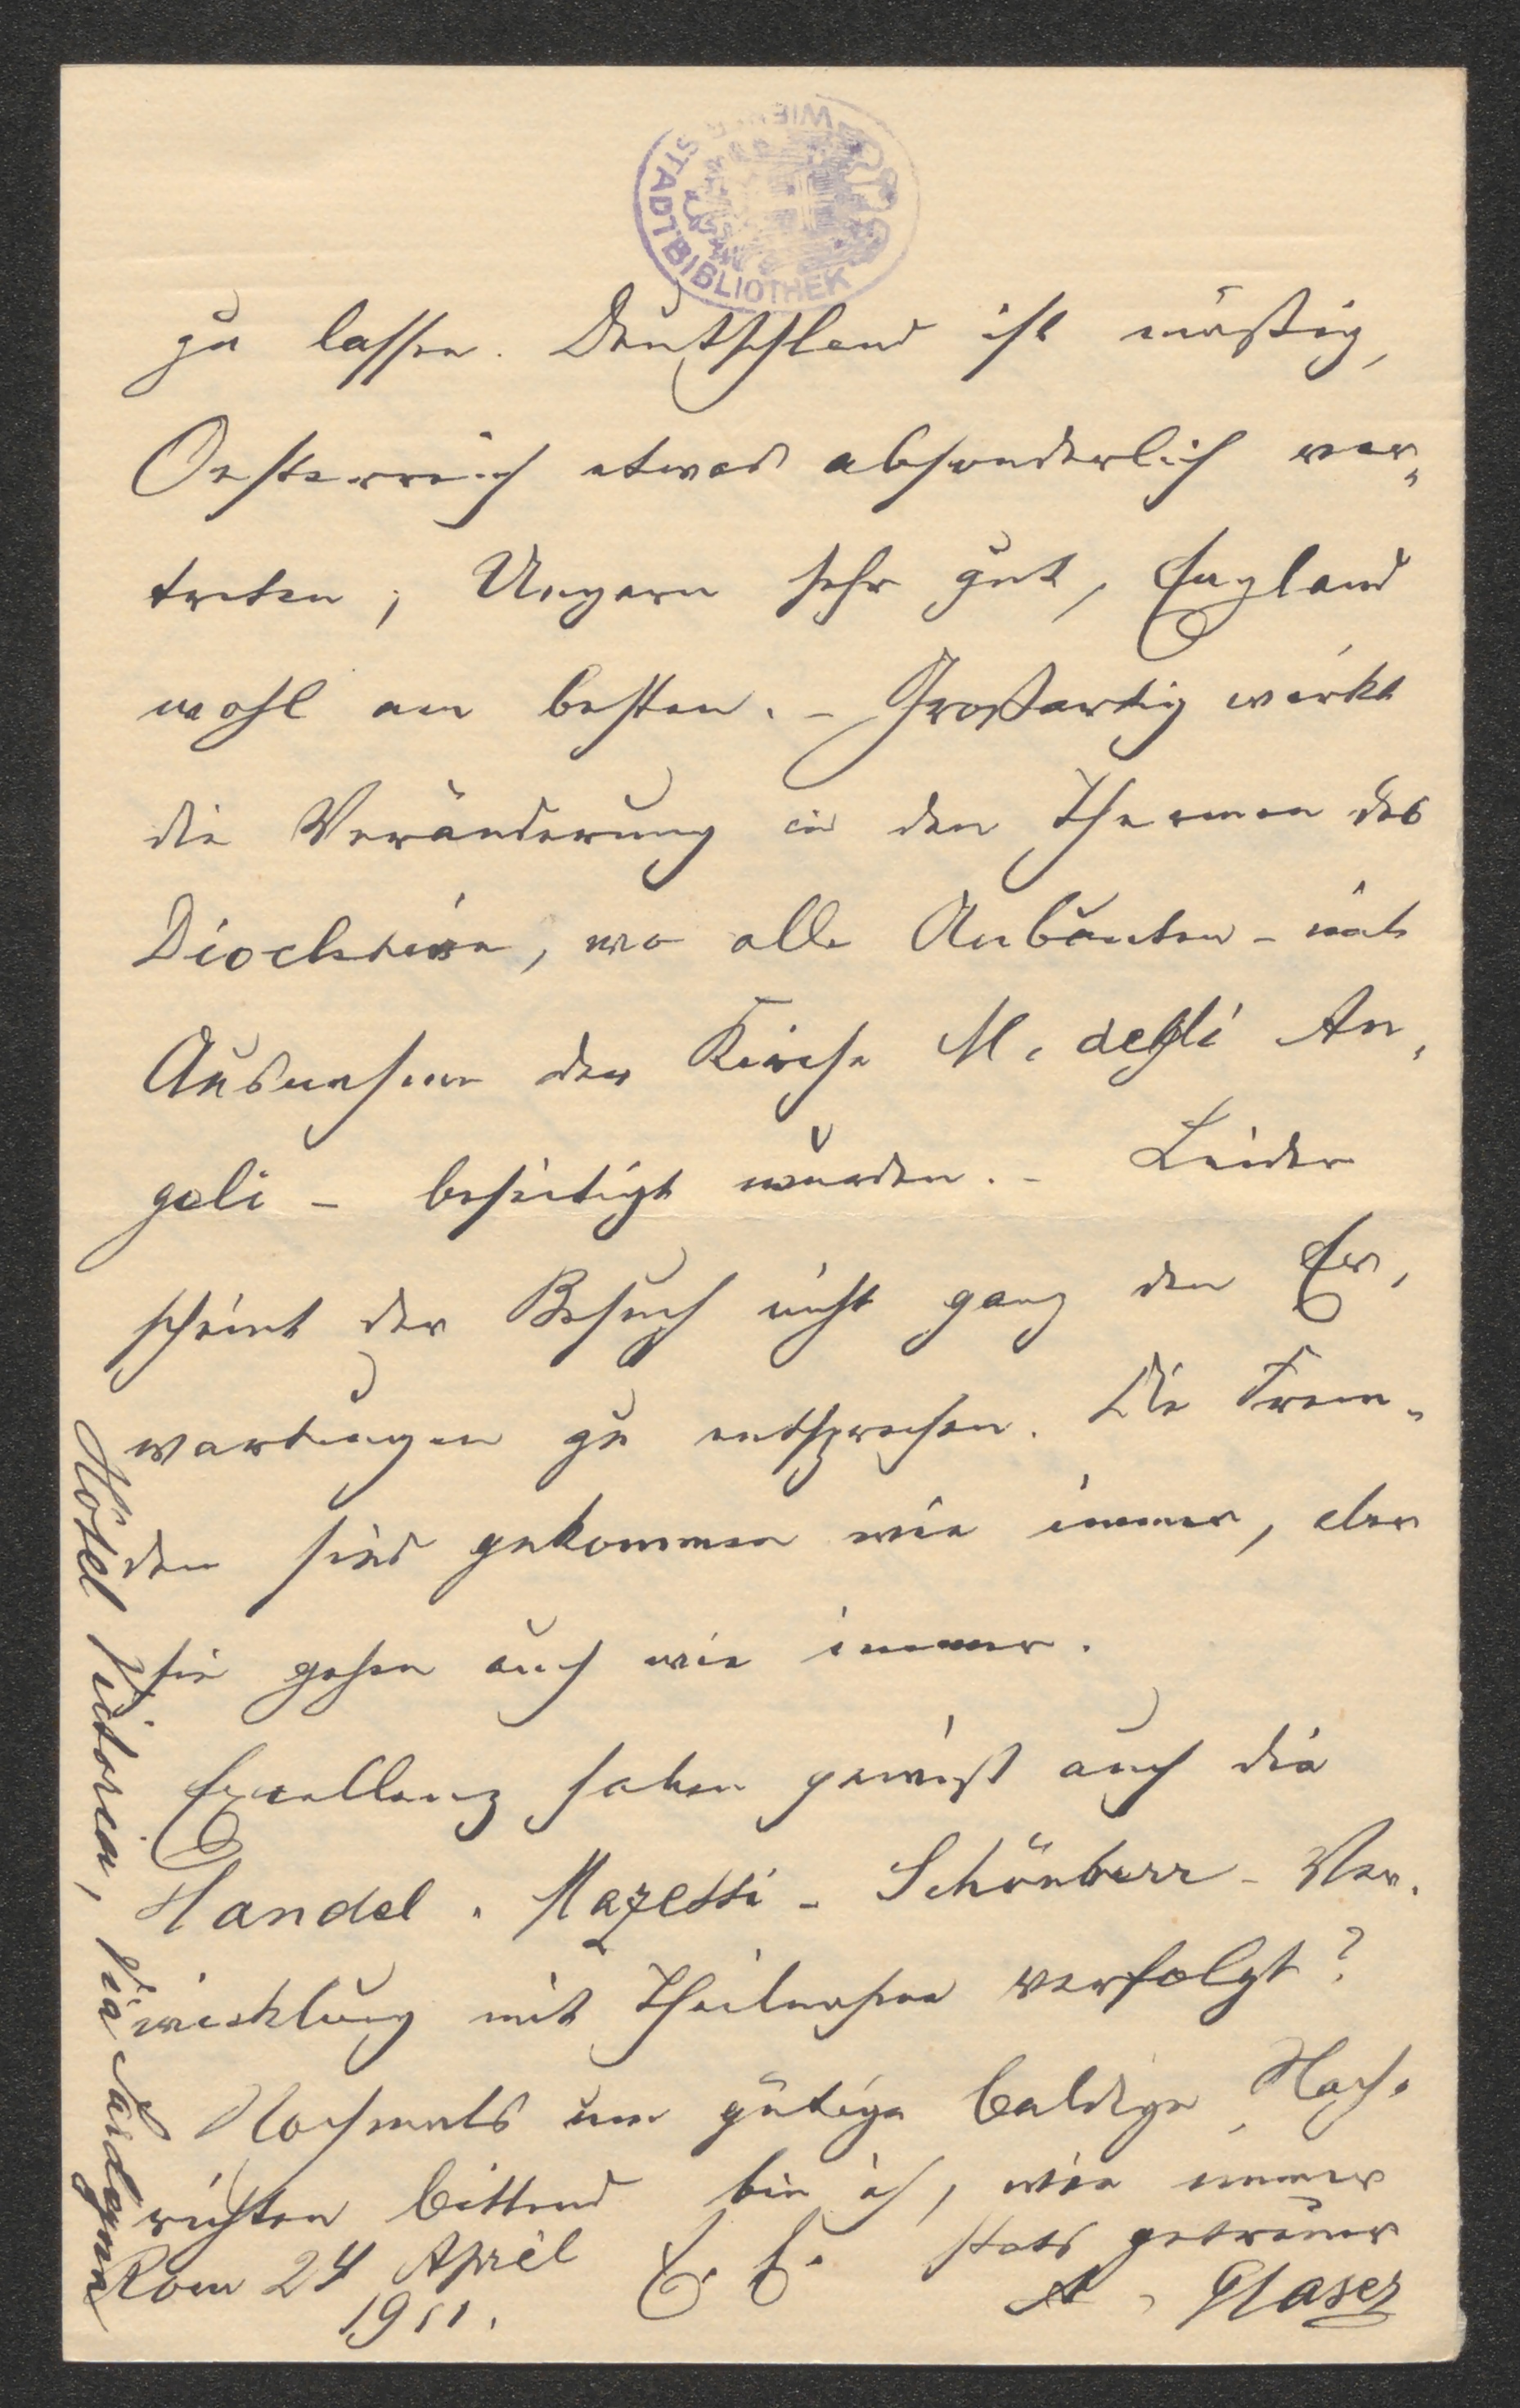 WIENER STADTBIBLIOTHEK
zu lassen. Deutschland ist mäßig,
Oesterreich etwas absonderlich ver-
treten; Ungarn sehr gut, England
wohl am besten. – Großartig wirkt
die Veränderung in den Thermen des
Diocletian, wo alle Anbauten – mit
Ausnahme der Kirche M. degli An-
geli – beseitigt wurden. – Leider
scheint der Besuch nicht ganz den Er-
wartungen zu entsprechen. Die Frem-
den sind gekommen wie immer, aber
sie gehen auch wie immer.
Excellenz haben gewiß auch die
Handel-Mazetti-Schönherr-Ver-
wicklung mit Theilnahme verfolgt?
Nochmals um gütige baldige Nach-
richten bittend bin ich, wie immer
E. E. stets getreuer
A. Glaser
Rom 24 April
1911.
Hôtel Victoria, Via Sardegna